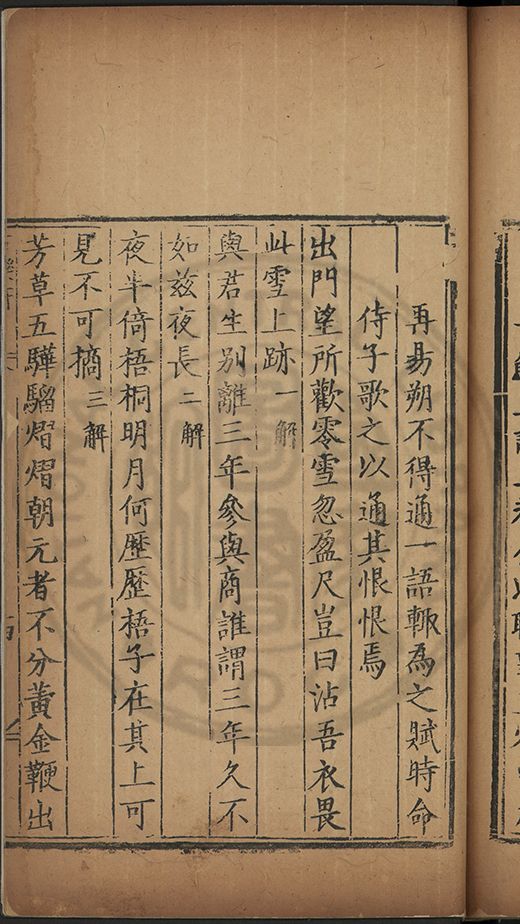 再易朔不得通一語輙為之賦時命
侍子歌之以通其恨恨焉
出門望所歡零雪忽盈尺豈曰沾吾衣畏
此雪上跡一解
與君生別離三年參與商誰謂三年久不
如茲夜長二解
夜半倚梧桐明月何歷歷梧子在其上可
見不可摘三解
芳草五驊騮熠熠朝元者不分黃金鞭出